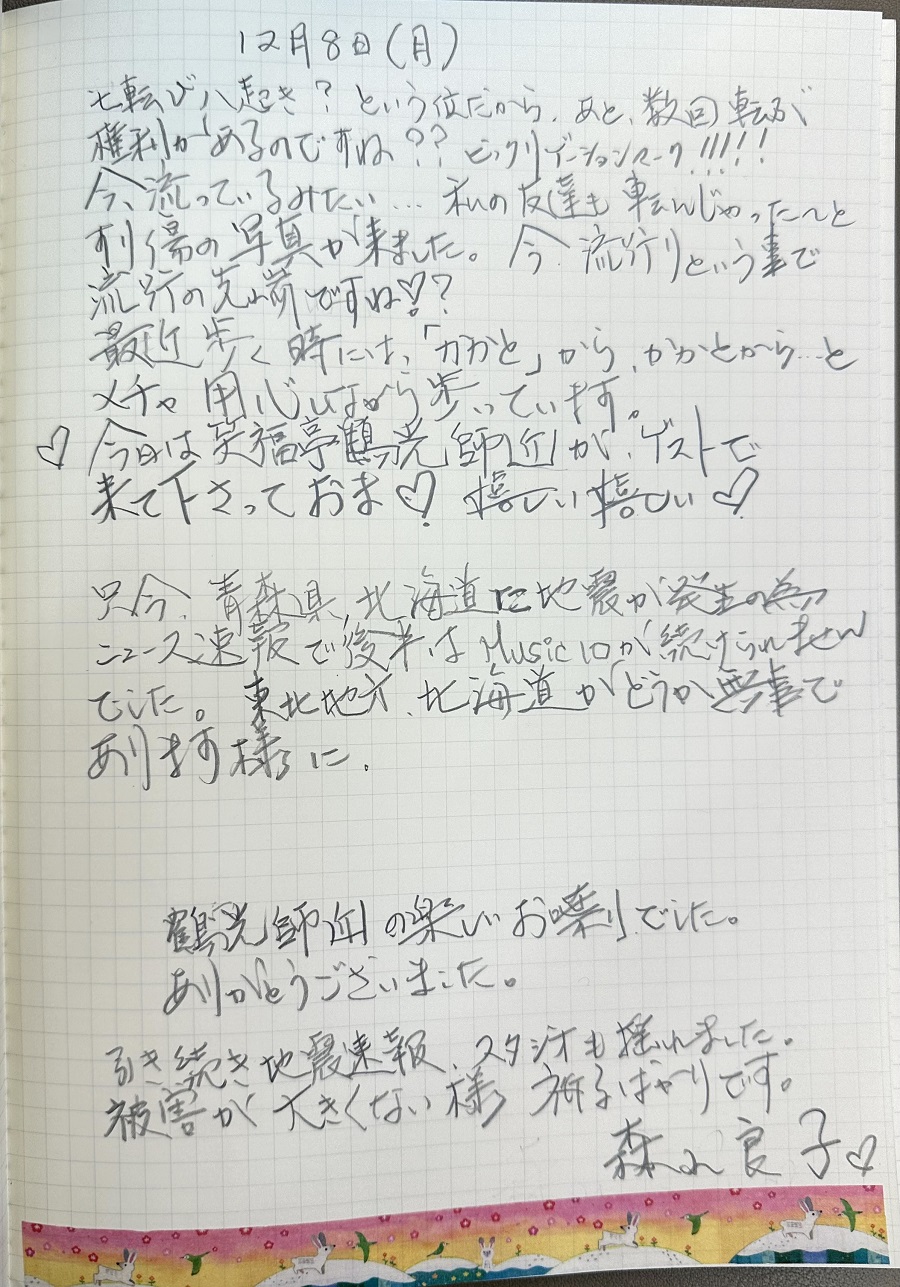 12月8日(月)
七転び八起き?という位だから、あと、数回転ぶ
権利があるのですね??ビックリゲーションマーク!!!!!
今、流っているみたい…私の友達も転んじゃった〜と
すり傷の写真が来ました。今、流行りという事で
流行の先端ですね♡?
最近歩く時には、「かかと」から、かかとから…と
メチャ用心しながら歩っています。
♡今日は笑福亭鶴光師匠が、ゲストで
来て下さっておま♡!嬉しい嬉しい♡
只今、青森県、北海道に地震が発生の為
ニュース速報で後半はMusic10が続けられません
でした。東北地方、北海道がどうか無事で
あります様に.
鶴光師匠の楽しいお喋りでした。
ありがとうございました。
引き続き地震速報、スタジオも揺れました。
被害が大きくない様祈るばかりです。
森山良子♡